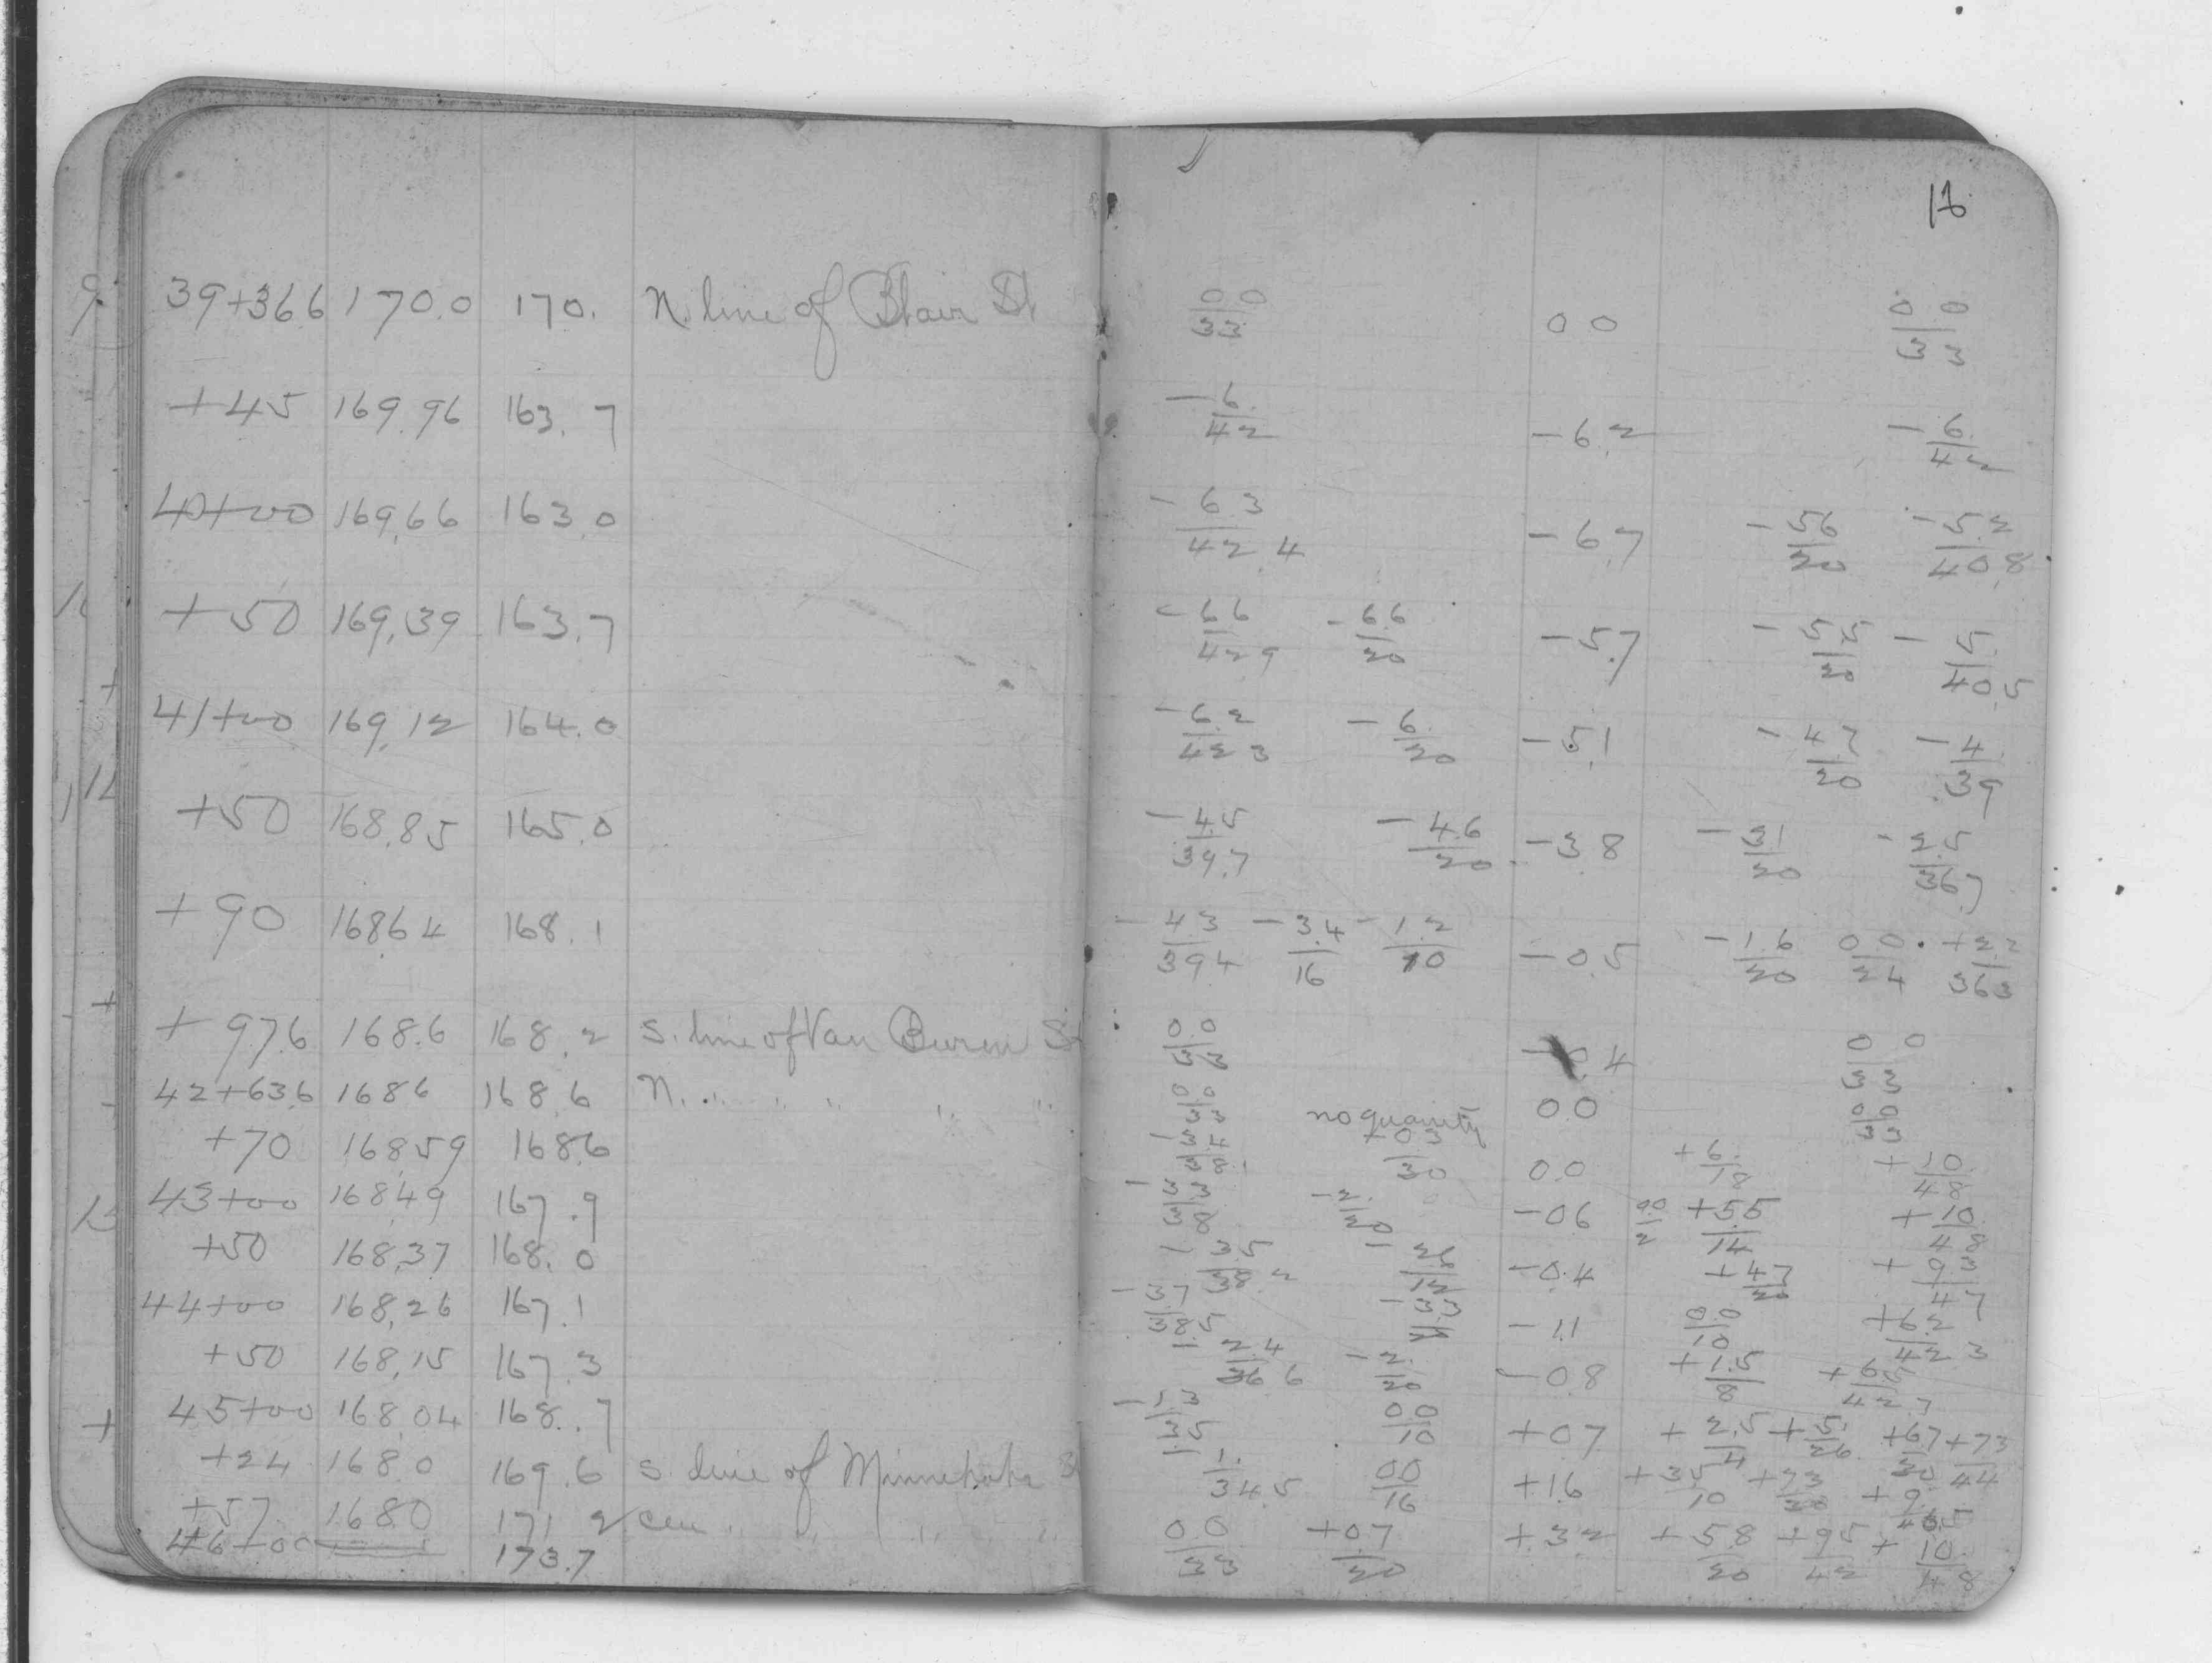 16
39+36.6 170.0 170. N. line of Blair St. 0 0/33 0 0 0 0/33
+45 169.96 163.7 -6./42 -6.2 -6./42
40+00 169.66 163.0 -6 3/42.4 -6.7 -56/20 -5.2/40.8
+50 169.39 163.7 -6 6/42 9 -6.6/20 -5.7 -5.5/20 -5./40.5
41+00 169.12 164.0 -6.2/42 3 -6./20 -5.1 -4.7/20 -4/39
+50 168.85 165.0 -4.5/39.7 -4.6/20 -3.8 -3.1/20 -2.5/36.7
+90 168.64 168.1 -4.3/39 4 -3.4/16 -1.2/10 -0.5 -1.6/20 0.0/24 +2.2/36.3
+97.6 168.6 168.2 S. line of Van Buren St 0.0/33 -0.4 0 0/33
42+63.6 168.6 168.6 N. " " " " " 0.0/33 no quantity 0.0 0.0/33
+70 168.59 168.6 -3.4/38.1 +0.3/30 0.0 +6./18 +10./48
43+00 168.49 167.9 -3.3/38 -2./20 -0.6 0.0/2 +5.5/14 +10./48
+50 168.37 168.0 -3.5/38.2 -2.8/12 -0.4 +4.7/20 +9.3/47
44+00 168.26 167.1 -3.7/38.5 -3.3 -1.1 0.0/10 +6.2/42 3
+50 168.15 167.3 -2.4/36 6 -2./20 -0.8 +1.5/8 +6.5/42.7
45+00 168.04 168.7 -1.3/35 0 0/10 +0.7 +2.5/4 +5./26 +6.7/30 +7.3/44
+24 168.0 169.6 S. line of Minnehaha St -1./34.5 0 0/16 +1.6 +3.5/10 +7.3/20 +9./46.5
+57 168.0 171.2 Cen " " " " 0.0/33 +0.7/20 +3.2 +5.8/20 +9.5/42 +10./48
46+00 173.7